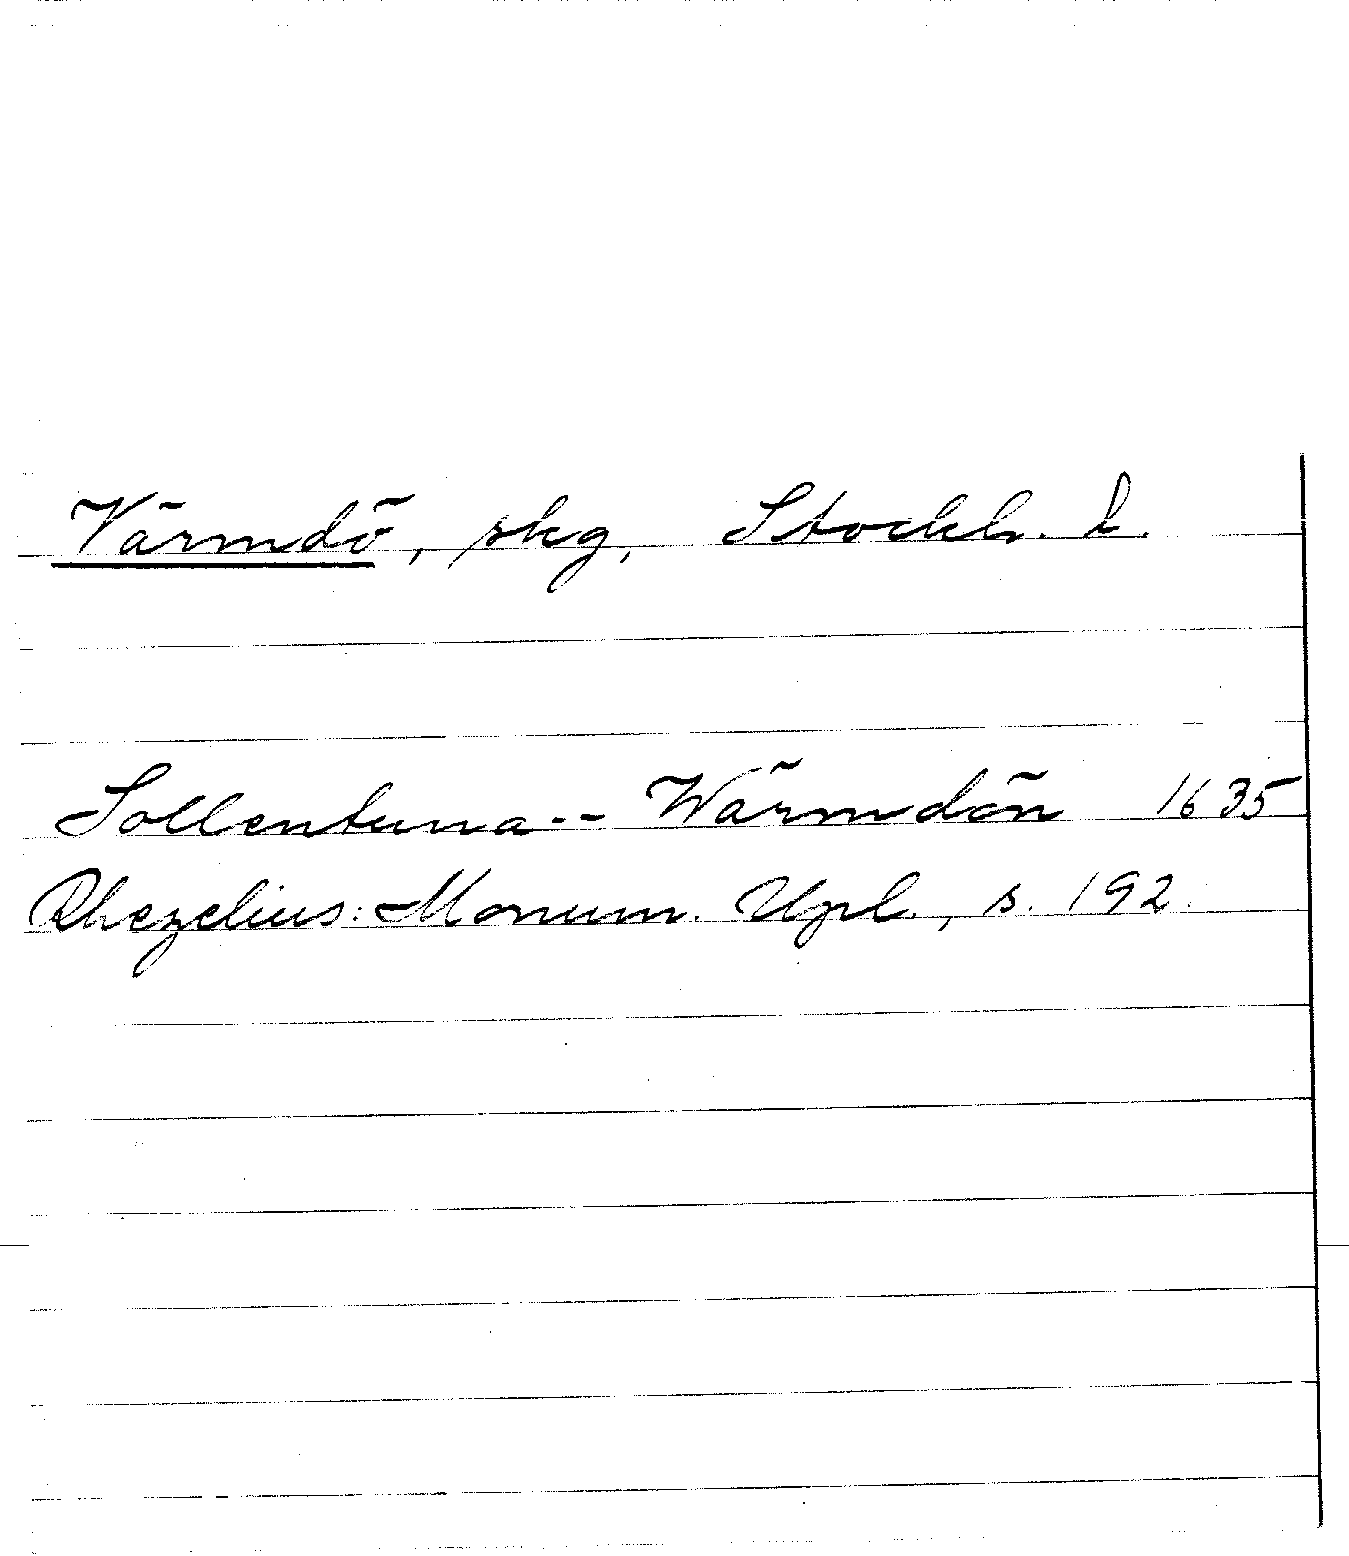 Värmdö, skg, Stockh. l.
Sollentuna -- Wärmdön 1635
Rhezelius: Monum. Upl., s. 192.